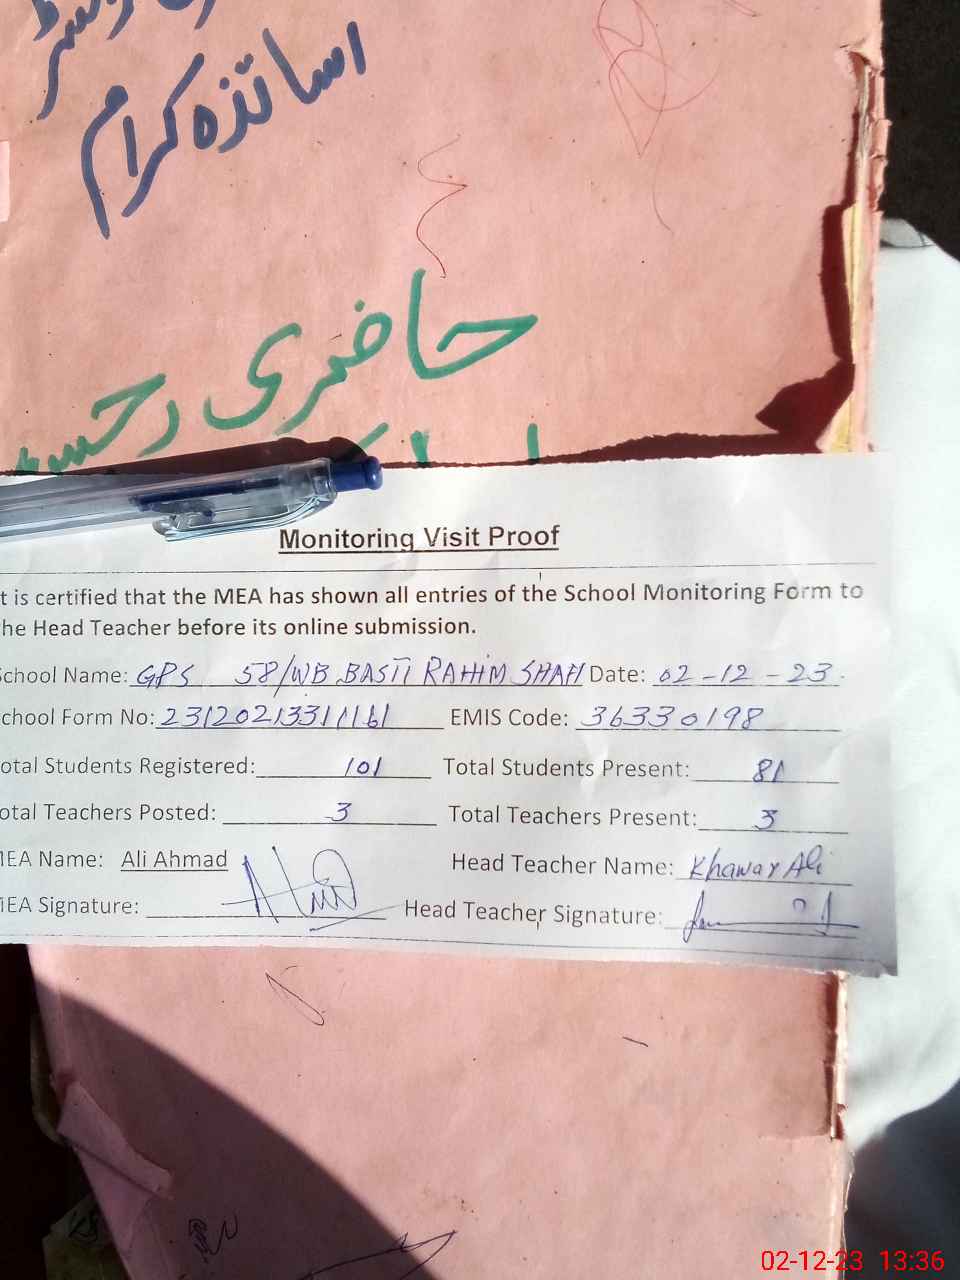 اساتذہ کرام
حاضری رجسٹر
Monitoring Visit Proof
t is certified that the MEA has shown all entries of the School Monitoring Form to
he Head Teacher before its online submission.
School Name: GPS 58/WB BASTI RAHIM SHAH Date: 02-12-23.
chool Form No: 23120213311161 EMIS Code: 36330198
otal Students Registered: 101 Total Students Present: 81
otal Teachers Posted: 3 Total Teachers Present: 3
MEA Name: Ali Ahmad Head Teacher Name: Khawar Ali
MEA Signature: Head Teacher Signature:
02-12-23 13:36